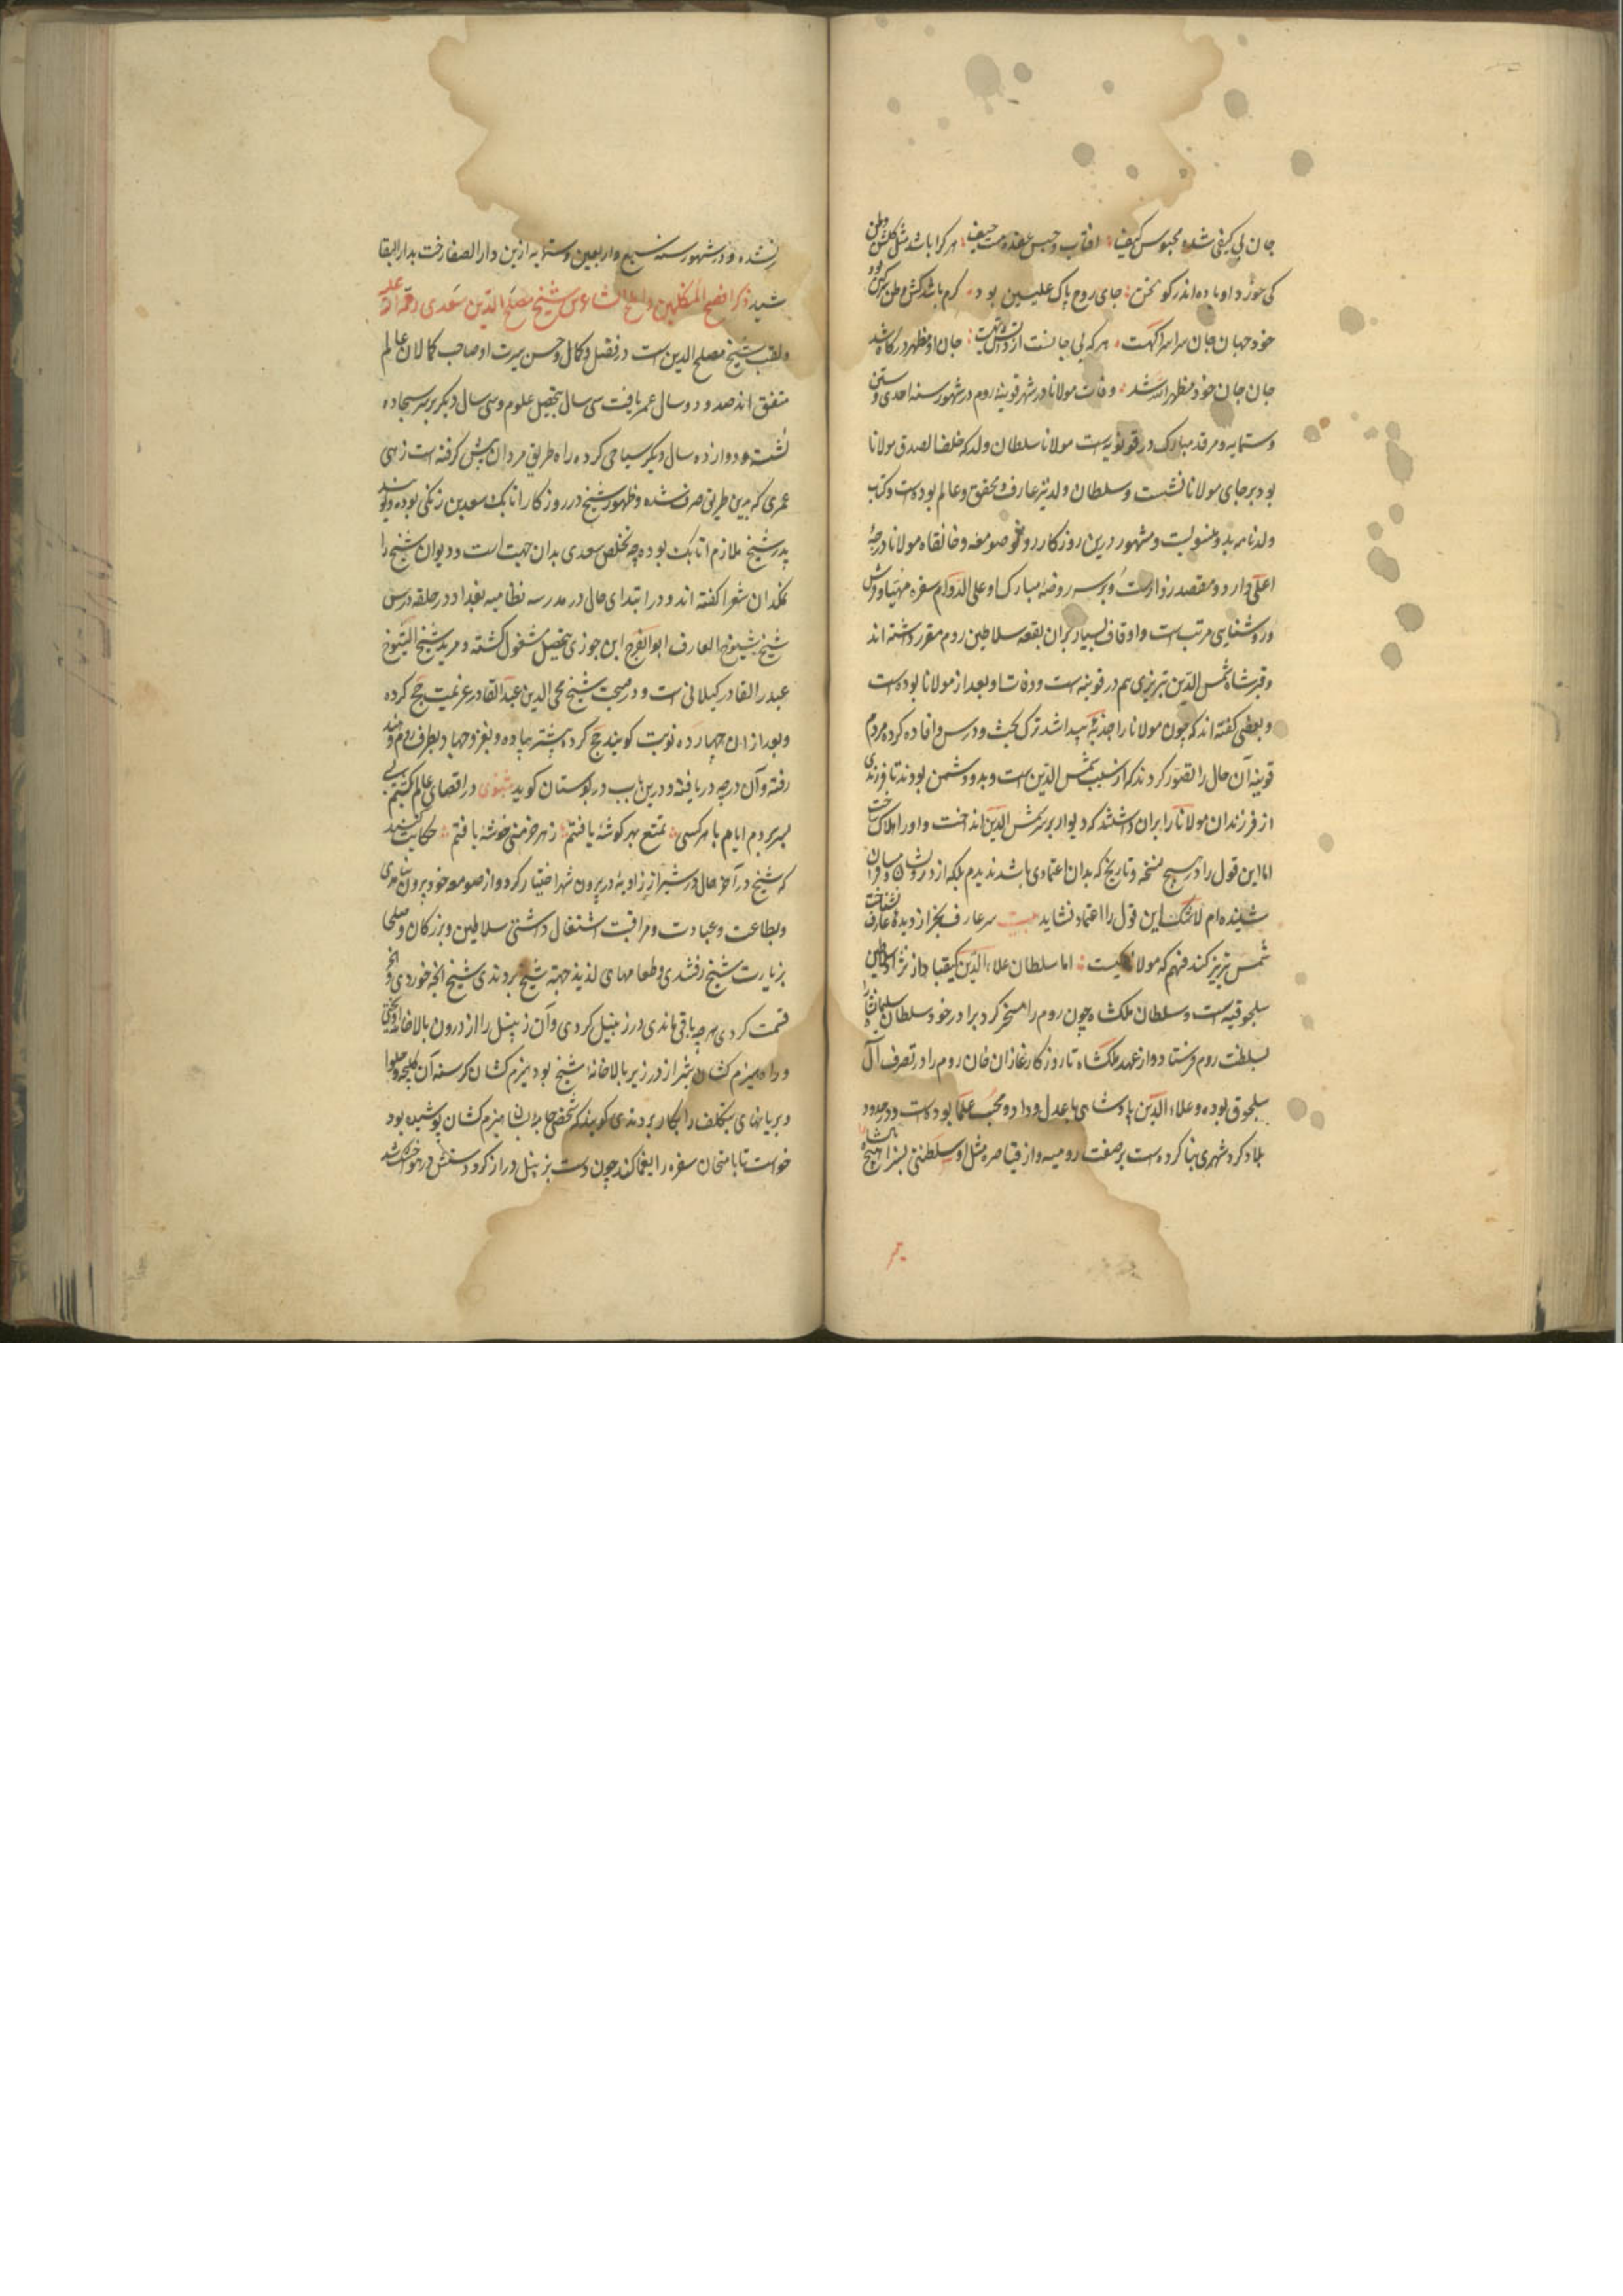 جان بی کیفی شده محبوس کیف آفتاب و حبس عقده حیف هر کرا باشد گلشن وطن
کی خورد او باده اندر گولخن جای روح پاک علیین بود کرم باشد کش وطن سرکین بود
خود جهان جان سراسر آگهست هر که بی جانست از دانش تهیست جان او مظهر درکاه شد
جان جان خود مظهر الله شد وفات مولانا در شهر قونیه روم در شهور سنه احدی و ستین
و ستمایه و مرقد مبارک در قونیه است مولانا سلطان ولد که خلف الصدق مولانا
بود بر جای مولانا نشست و سلطان ولد نیز عارف و محقق و عالم بوده است و کتاب
ولدنامه بدو منسوبست و مشهور درین روزکار رونق صومعه و خانقاه مولانا درجهٔ
اعلی دارد و مقصد زوارست و بر سر روضه مبارک او علی الدوام سفره مهیا و فرش
و روشنایی مرتب است و اوقاف بسیار بران بقعه سلاطین روم مقرر داشته اند
و قبر شاه شمس الدین تبریزی هم در قونیه است و وفات او بعد از مولانا بوده است
و بعضی کفته اند که چون مولانا را جذبهٔ پیدا شد ترک بحث و درس و افاده کرده مردم
قونیه آن حال را تصور کردند که از سبب شمس الدین است و بدو دشمن بودند تا فرزندی
از فرزندان مولانا را بران داشتند که دیوار بر سر شمس الدین انداخت و او را هلاک ساخت
اما این قول را در هیچ نسخه و تاریخ که بدان اعتمادی باشد ندیدم بلکه از درویشان و مسافران
شنیده ام لاشک این قول را اعتماد نشاید بیت سر عارف بجز از دیدهٔ عارف نشناخت
شمس تبریز کند فهم که مولانا کیست اما سلطان علاء الدین کیقباد از نژاد سلاطین
سلجوقیه است و سلطان ملکشاه چون روم را مسخر کرد برادر خود سلطان سلیمان شاه را
بسلطنت روم فرستاد و از عهد ملکشاه تا روزکار غازان خان روم را در تصرف آل
سلجوق بوده و علاء الدین پادشاهی با عدل و داد و محب علما بوده است و در حدود
بلاد کرد شهری بنا کرده است بر صفت رومیه و از قیاصره مثل او سلطنتی بسزا هیچ پادشاه را
نشده و در شهور سنه سبع و اربعین و ستمایه ازین دار الصفا رخت بدار البقا
کشید ذکر افصح المتکلمین و املح الشاعرین شیخ مصلح الدین سعدی رحمة الله علیه
و لقب شیخ مصلح الدین است در فضل و کمال و حسن سیرت او صاحب کمالان عالم
متفق اند صد و دو سال عمر یافت سی سال بتحصیل علوم و سی سال دیکر بر سر سجاده
نشسته و دوازده سال دیکر سیاحی کرده راه طریق مردان پیش کرفته است زهی
عمری که بدین طریق صرف شده و ظهور شیخ در روزکار اتابک سعد بن زنکی بوده و کویند
پدر شیخ ملازم اتابک بوده چه تخلص سعدی بدان جهت است و دیوان شیخ را
نمکدان شعرا کفته اند و در ابتدای حال در مدرسه نظامیه بغداد در حلقه درس
شیخ شیوخ العارف ابو الفرج ابن جوزی بتحصیل مشغول کشته و مرید شیخ الشیوخ
عبد القادر کیلانی است و در صحبت شیخ محی الدین عبد القادر عزیمت حج کرده
و بعد از ان چهارده نوبت کویند حج کرده بیشتر پیاده و بغزو جهاد بطرف روم و هند
رفته و آن درجه دریافته و درین باب در بوستان کوید مثنوی در اقصای عالم بکشتم بسی
بسر بردم ایام با هر کسی تمتع بهر کوشهٔ یافتم ز هر خرمنی خوشه یافتم حکایت کنند
که شیخ در آخر حال در شیراز زاویهٔ در بیرون شهر اختیار کرد و از صومعه خود بیرون نیامدی
و بطاعت و عبادت و مراقبت اشتغال داشتی سلاطین و بزرکان و صلحا
بزیارت شیخ رفتندی و طعامهای لذیذ جهة شیخ بردندی شیخ انچه خوردی و انچه
قسمت کردی هر چه باقی ماندی در زنبیل کردی و آن زنبیل را از درون بالاخانه آویختی
و راه هیزم کشان شیراز در زیر بالاخانهٔ شیخ بود هیزم کشان کرسنه آن کلیچه و حلوا
و بریانهای بتکلف را بکار بردندی کویند که شخصی جامهٔ هیزم کشان پوشیده بود
خواست تا بامتحان سفره را یغما کند چون دست بزنبیل دراز کرد دستش در هوا خشک شد